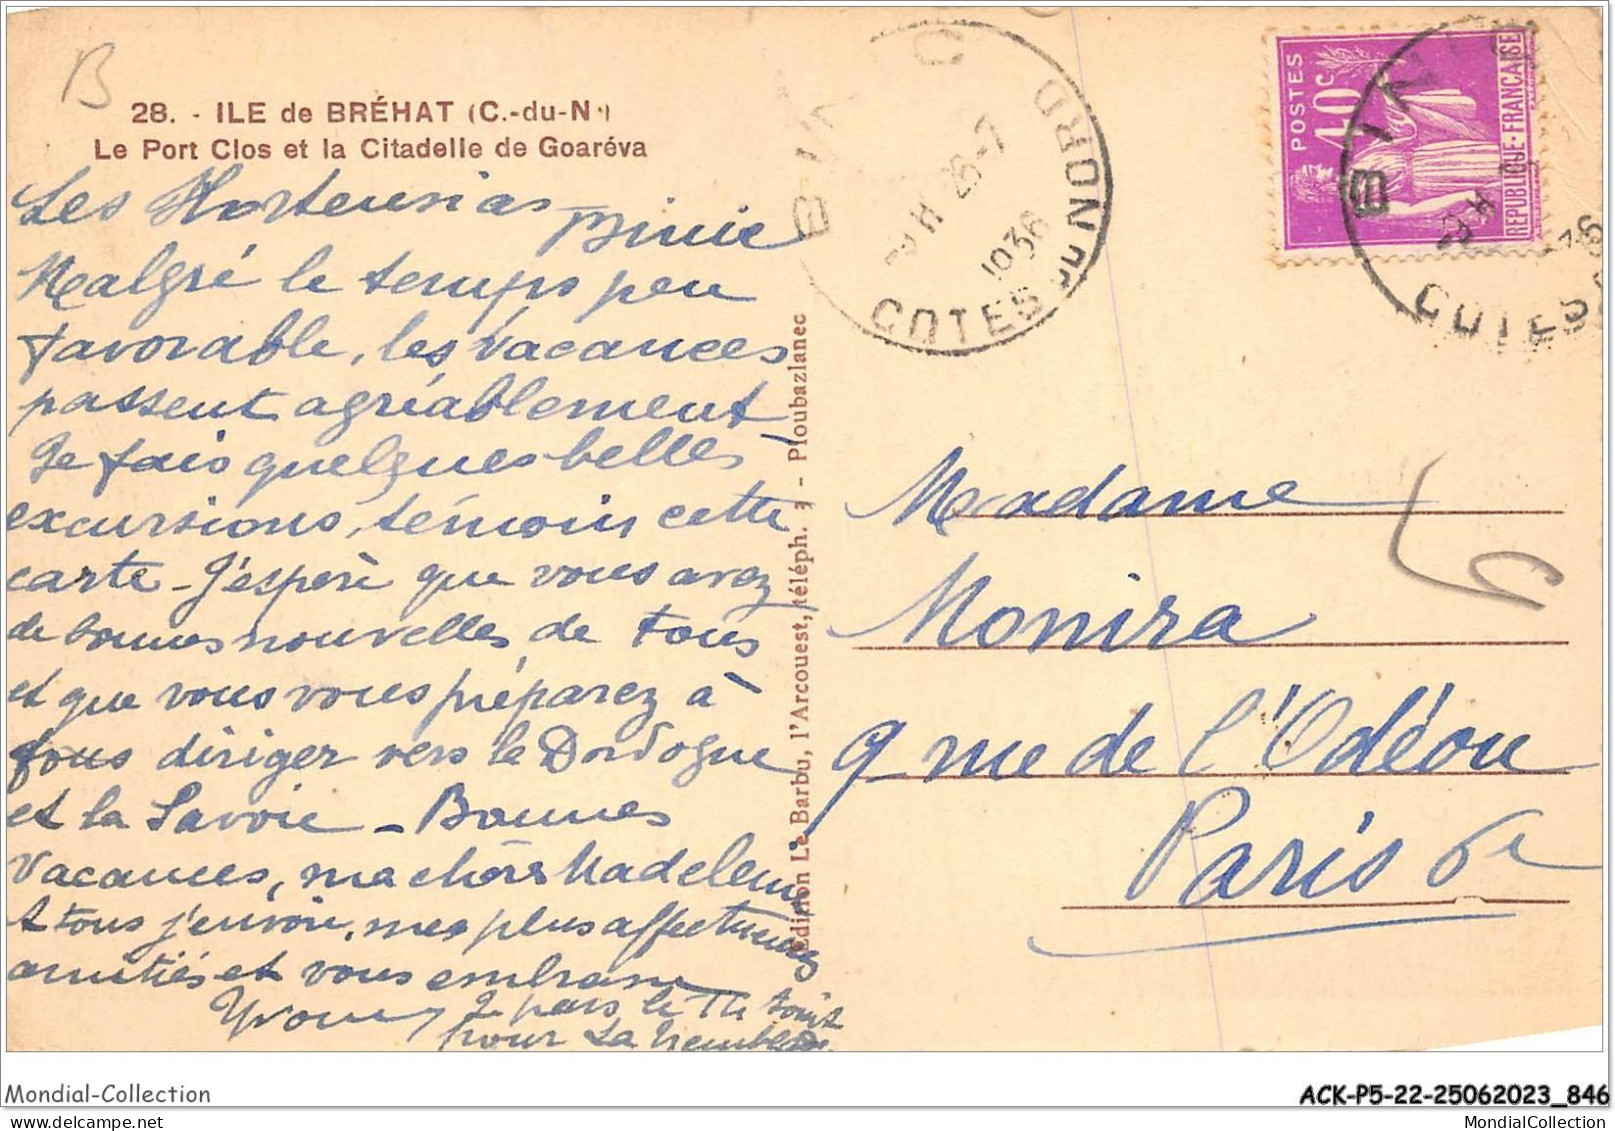 B
28. - ILE de BRÉHAT (C.-du-N.)
Le Port Clos et la Citadelle de Goaréva
Les Hortensias
Binic
Malgré le temps peu
favorable, les vacances
passent agréablement
Je fais quelques belles
excursions, témoin cette
carte - J'espère que vous avez
de bonnes nouvelles de tous
et que vous vous préparez à
tous diriger vers la Dordogne
et la Savoie - Bonnes
Vacances, ma chère Madeleine
à tous j'envoie, mes plus affectueuses
amitiés et vous embrasse
Yvonne
Je pars le 14 Août
pour La
Edition Le Barbu, l'Arcouest, téléph. 3 - Ploubazlanec
BINIC
CÔTES DU NORD
9 H 25-7
1936
POSTES
40c
REPUBLIQUE-FRANÇAISE
BINIC
COTES
36
Madame
Monira
9 rue de l'Odéon
Paris 6e
Mondial-Collection
ACK-P5-22-25062023_846
MondialCollection